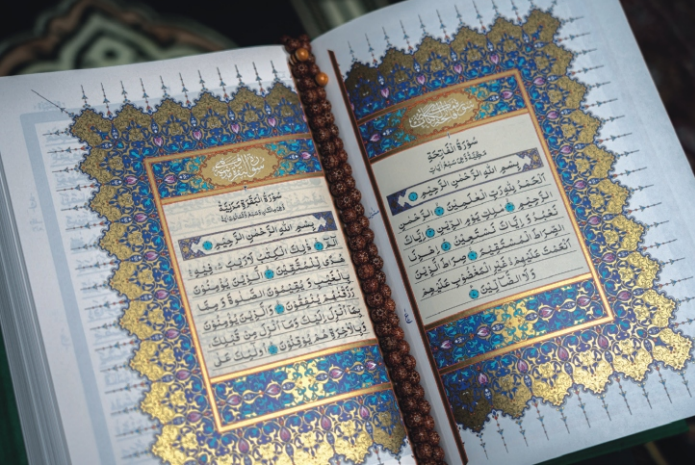 سُورَةُ الْفَاتِحَةِ
بِسْمِ اللّٰهِ الرَّحْمٰنِ الرَّحِيمِ
اَلْحَمْدُ لِلّٰهِ رَبِّ الْعٰلَمِينَ الرَّحْمٰنِ
الرَّحِيمِ مٰلِكِ يَوْمِ الدِّينِ اِيَّاكَ
نَعْبُدُ وَاِيَّاكَ نَسْتَعِينُ اِهْدِنَا
الصِّرَاطَ الْمُسْتَقِيمَ صِرَاطَ الَّذِينَ
اَنْعَمْتَ عَلَيْهِمْ غَيْرِ الْمَغْضُوبِ عَلَيْهِمْ
وَلَا الضَّالِّينَ
سُورَةُ الْبَقَرَةِ مَدَنِيَّةٌ
بِسْمِ اللّٰهِ الرَّحْمٰنِ الرَّحِيمِ
الٓمٓ ذٰلِكَ الْكِتٰبُ لَا رَيْبَ فِيهِ
هُدًى لِلْمُتَّقِينَ الَّذِينَ يُؤْمِنُونَ
بِالْغَيْبِ وَيُقِيمُونَ الصَّلٰوةَ وَمِمَّا
رَزَقْنٰهُمْ يُنْفِقُونَ وَالَّذِينَ يُؤْمِنُونَ
بِمَا اُنْزِلَ اِلَيْكَ وَمَا اُنْزِلَ مِنْ قَبْلِكَ
وَبِالْاٰخِرَةِ هُمْ يُوقِنُونَ اُولٰئِكَ عَلٰى